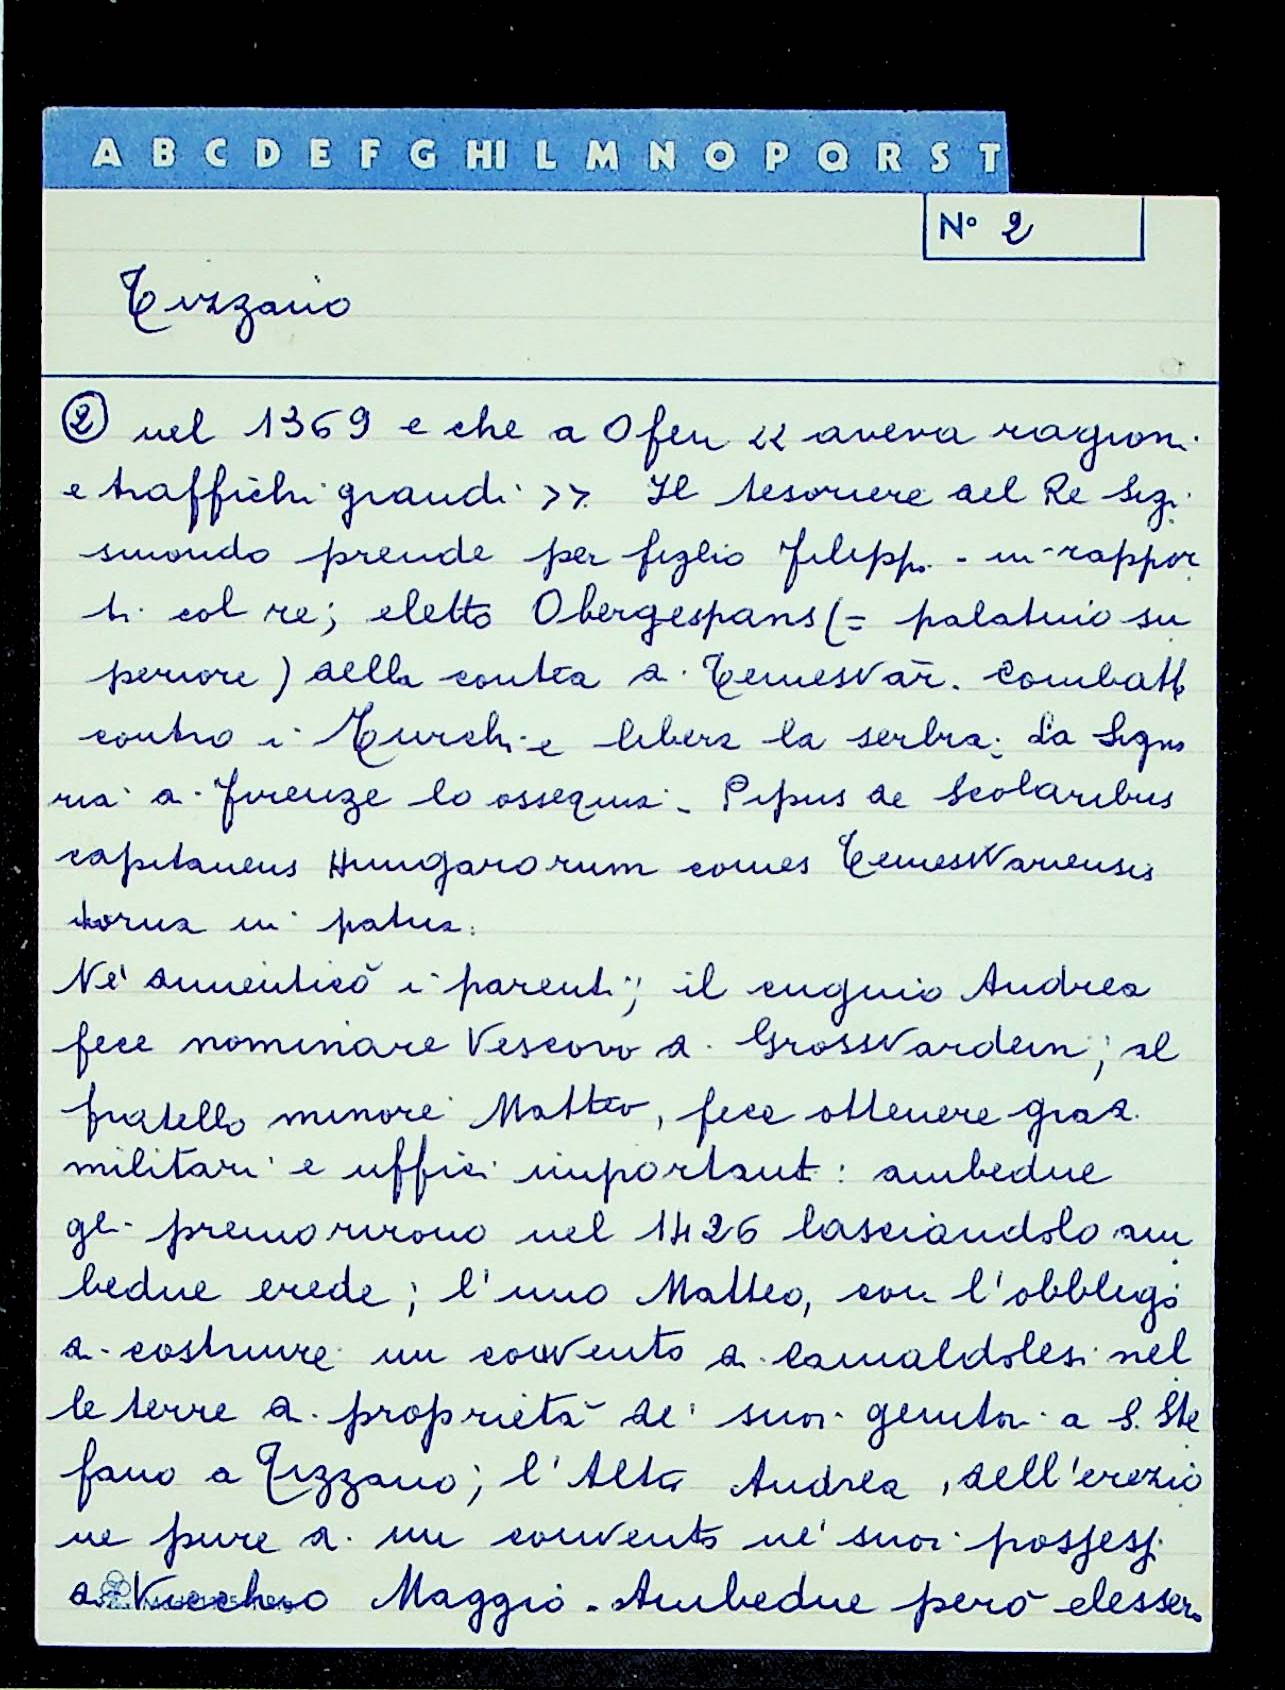 A B C D E F G HI L M N O P Q R S T
N° 2
Tizzano
② nel 1369 e che a Ofen << aveva ragioni
e traffichi grandi >>. Il tesoriere del Re Sigi
smondo prende per figlio Filippo - in rappor
ti col re; eletto Obergespans (= palatino su
periore) della contea di Temesvár. Combatte
contro i Turchi e libera la serbia. La Signo
ria di Firenze lo ossequia - Pipus de Scolaribus
capitaneus Hungarorum comes TemesWariensis
torna in patria.
Né dimenticò i parenti; il cugino Andrea
fece nominare Vescovo di GrossWardein; al
fratello minore Matteo, fece ottenere gradi
militari e uffici importanti: ambedue
gli premorirono nel 1426 lasciandolo am
bedue erede; l'uno Matteo, con l'obbligo
di costruire un convento di Camaldolesi nel
le terre di proprietà de' suoi genitori a S. Ste
fano a Tizzano; l'altro Andrea, dell'erezio
ne pure di un convento ne' suoi possessi
di Vicchio Maggio. Ambedue però elessero